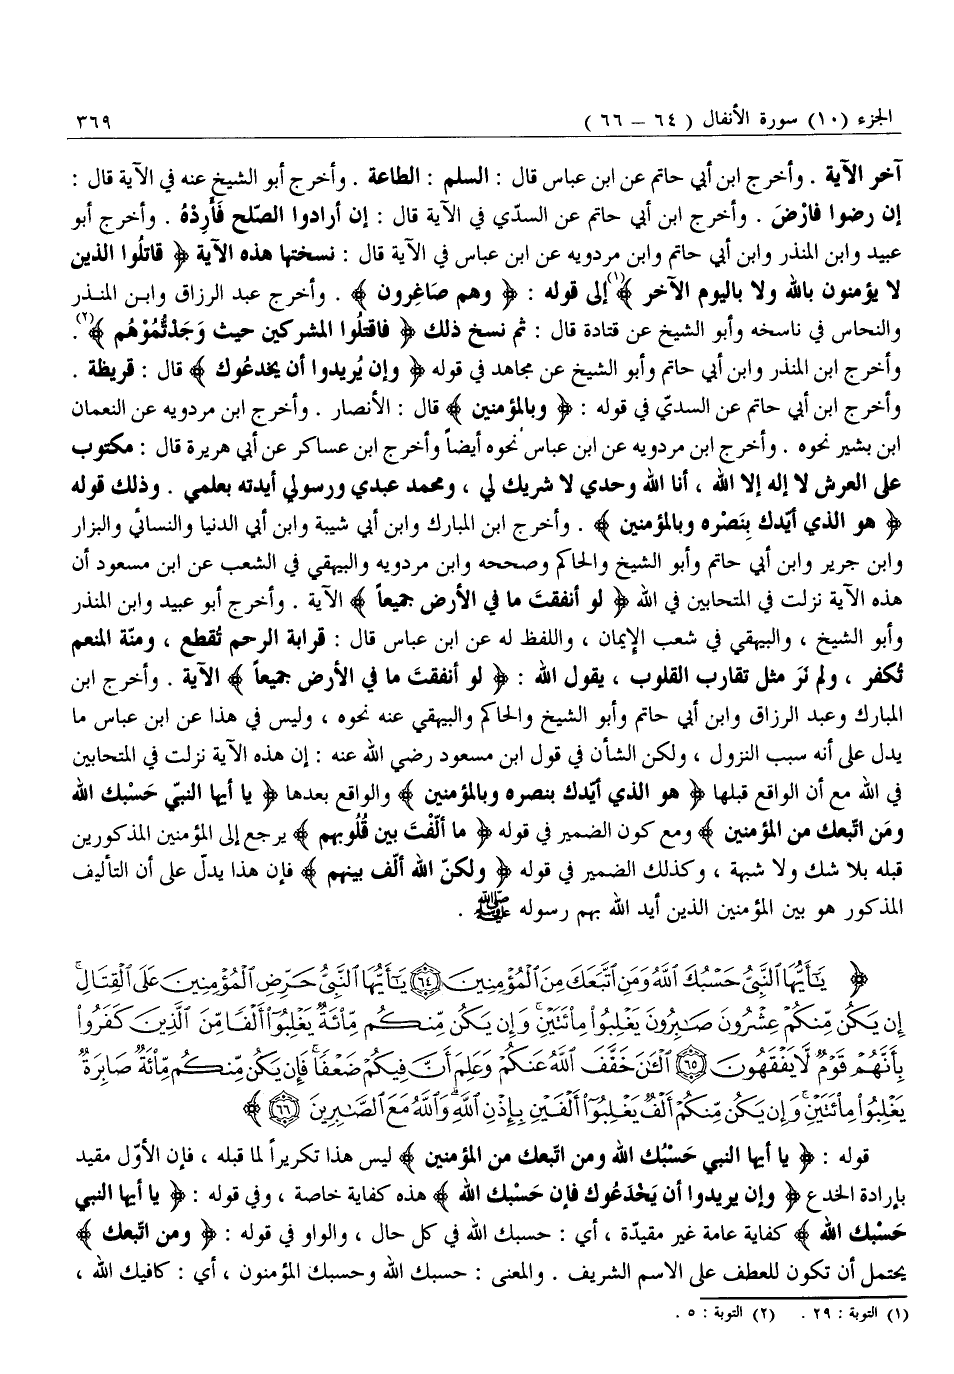 الجزء (١٠) سورة الأنفال ( ٦٤ – ٦٦ ) ٣٦٩
آخر الآية . وأخرج ابن أبي حاتم عن ابن عباس قال : السلم : الطاعة . وأخرج أبو الشيخ عنه في الآية قال :
إن رضوا فارْضَ . وأخرج ابن أبي حاتم عن السدّي في الآية قال : إن أرادوا الصّلح فَأَرِدْهُ . وأخرج أبو
عبيد وابن المنذر وابن أبي حاتم وابن مردويه عن ابن عباس في الآية قال : نسختها هذه الآية ﴿ قاتلُوا الذين
لا يؤمنون بالله ولا باليوم الآخر ﴾(١) إلى قوله : ﴿ وهم صَاغِرون ﴾ . وأخرج عبد الرزاق وابن المنذر
والنحاس في ناسخه وأبو الشيخ عن قتادة قال : ثم نسخ ذلك ﴿ فاقتلُوا المشركين حيث وَجَدْتُمُوْهُم ﴾(٢) .
وأخرج ابن المنذر وابن أبي حاتم وأبو الشيخ عن مجاهد في قوله ﴿ وإن يُريدوا أن يخدعُوك ﴾ قال : قريظة .
وأخرج ابن أبي حاتم عن السديّ في قوله : ﴿ وبالمؤمنين ﴾ قال : الأنصار . وأخرج ابن مردويه عن النعمان
ابن بشير نحوه . وأخرج ابن مردويه عن ابن عباس نحوه أيضاً وأخرج ابن عساكر عن أبي هريرة قال : مكتوب
على العرش لا إله إلا الله ، أنا الله وحدي لا شريك لي ، ومحمد عبدي ورسولي أيدته بعلمي . وذلك قوله
﴿ هو الذي أيّدك بِنَصْره وبالمؤمنين ﴾ . وأخرج ابن المبارك وابن أبي شيبة وابن أبي الدنيا والنسائي والبزار
وابن جرير وابن أبي حاتم وأبو الشيخ والحاكم وصححه وابن مردويه والبيهقي في الشعب عن ابن مسعود أن
هذه الآية نزلت في المتحابين في الله ﴿ لو أنفقتَ ما في الأرض جميعاً ﴾ الآية . وأخرج أبو عبيد وابن المنذر
وأبو الشيخ ، والبيهقي في شعب الإيمان ، واللفظ له عن ابن عباس قال : قرابة الرحم تُقطع ، ومنّة المنعم
تُكفر ، ولم نَرَ مثل تقارب القلوب ، يقول الله : ﴿ لو أنفقتَ ما في الأرض جميعاً ﴾ الآية . وأخرج ابن
المبارك وعبد الرزاق وابن أبي حاتم وأبو الشيخ والحاكم والبيهقي عنه نحوه ، وليس في هذا عن ابن عباس ما
يدل على أنه سبب النزول ، ولكن الشأن في قول ابن مسعود رضي الله عنه : إن هذه الآية نزلت في المتحابين
في الله مع أن الواقع قبلها ﴿ هو الذي أيّدك بنصره وبالمؤمنين ﴾ والواقع بعدها ﴿ يا أيها النبيّ حَسْبك الله
ومَن اتّبعك من المؤمنين ﴾ ومع كون الضمير في قوله ﴿ ما ألّفْتَ بين قُلُوبهم ﴾ يرجع إلى المؤمنين المذكورين
قبله بلا شك ولا شبهة ، وكذلك الضمير في قوله ﴿ ولكنّ الله ألّف بينهم ﴾ فإن هذا يدلّ على أن التأليف
المذكور هو بين المؤمنين الذين أيد الله بهم رسوله ﷺ .
﴿ يَٰٓأَيُّهَا ٱلنَّبِيُّ حَسْبُكَ ٱللَّهُ وَمَنِ ٱتَّبَعَكَ مِنَ ٱلْمُؤْمِنِينَ ٦٤ يَٰٓأَيُّهَا ٱلنَّبِيُّ حَرِّضِ ٱلْمُؤْمِنِينَ عَلَى ٱلْقِتَالِ ۚ
إِن يَكُن مِّنكُمْ عِشْرُونَ صَٰبِرُونَ يَغْلِبُوا۟ مِا۟ئَتَيْنِ ۚ وَإِن يَكُن مِّنكُم مِّا۟ئَةٌ يَغْلِبُوٓا۟ أَلْفًا مِّنَ ٱلَّذِينَ كَفَرُوا۟
بِأَنَّهُمْ قَوْمٌ لَّا يَفْقَهُونَ ٦٥ ٱلْـَٰٔنَ خَفَّفَ ٱللَّهُ عَنكُمْ وَعَلِمَ أَنَّ فِيكُمْ ضَعْفًا ۚ فَإِن يَكُن مِّنكُم مِّا۟ئَةٌ صَابِرَةٌ
يَغْلِبُوا۟ مِا۟ئَتَيْنِ ۚ وَإِن يَكُن مِّنكُمْ أَلْفٌ يَغْلِبُوٓا۟ أَلْفَيْنِ بِإِذْنِ ٱللَّهِ ۗ وَٱللَّهُ مَعَ ٱلصَّٰبِرِينَ ٦٦ ﴾
قوله : ﴿ يا أيها النبي حَسْبُك الله ومن اتبعك من المؤمنين ﴾ ليس هذا تكريراً لما قبله ، فإن الأوّل مقيد
بإرادة الخدع ﴿ وإن يريدوا أن يَخْدَعُوك فإن حَسْبك الله ﴾ هذه كفاية خاصة ، وفي قوله : ﴿ يا أيها النبي
حَسْبك الله ﴾ كفاية عامة غير مقيدّة ، أي : حسبك الله في كل حال ، والواو في قوله : ﴿ ومن اتّبعك ﴾
يحتمل أن تكون للعطف على الاسم الشريف . والمعنى : حسبك الله وحسبك المؤمنون ، أي : كافيك الله ،
(١) التوبة : ٢٩ . (٢) التوبة : ٥ .